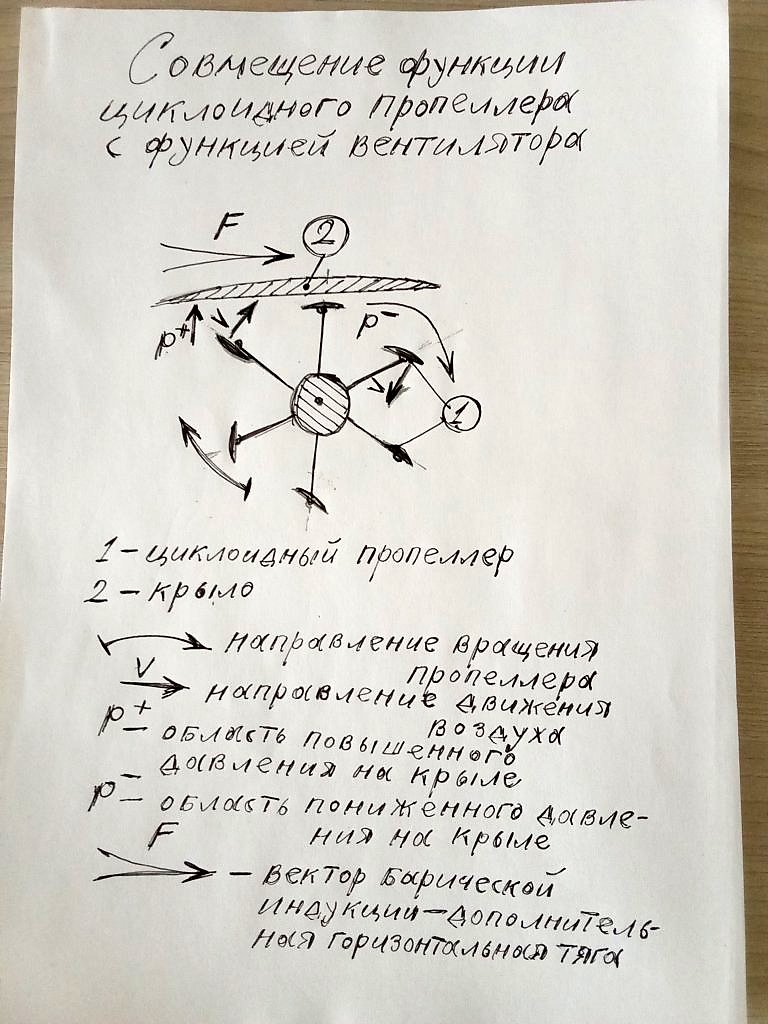 Совмещение функции
циклоидного пропеллера
с функцией вентилятора
F
2
p+
V
p−
V
1
1 – циклоидный пропеллер
2 – крыло
направление вращения
пропеллера
V
направление движения
воздуха
p+ – область повышенного
давления на крыле
p− – область пониженного давле-
ния на крыле
F
– вектор барической
индукции – дополнитель-
ная горизонтальная тяга